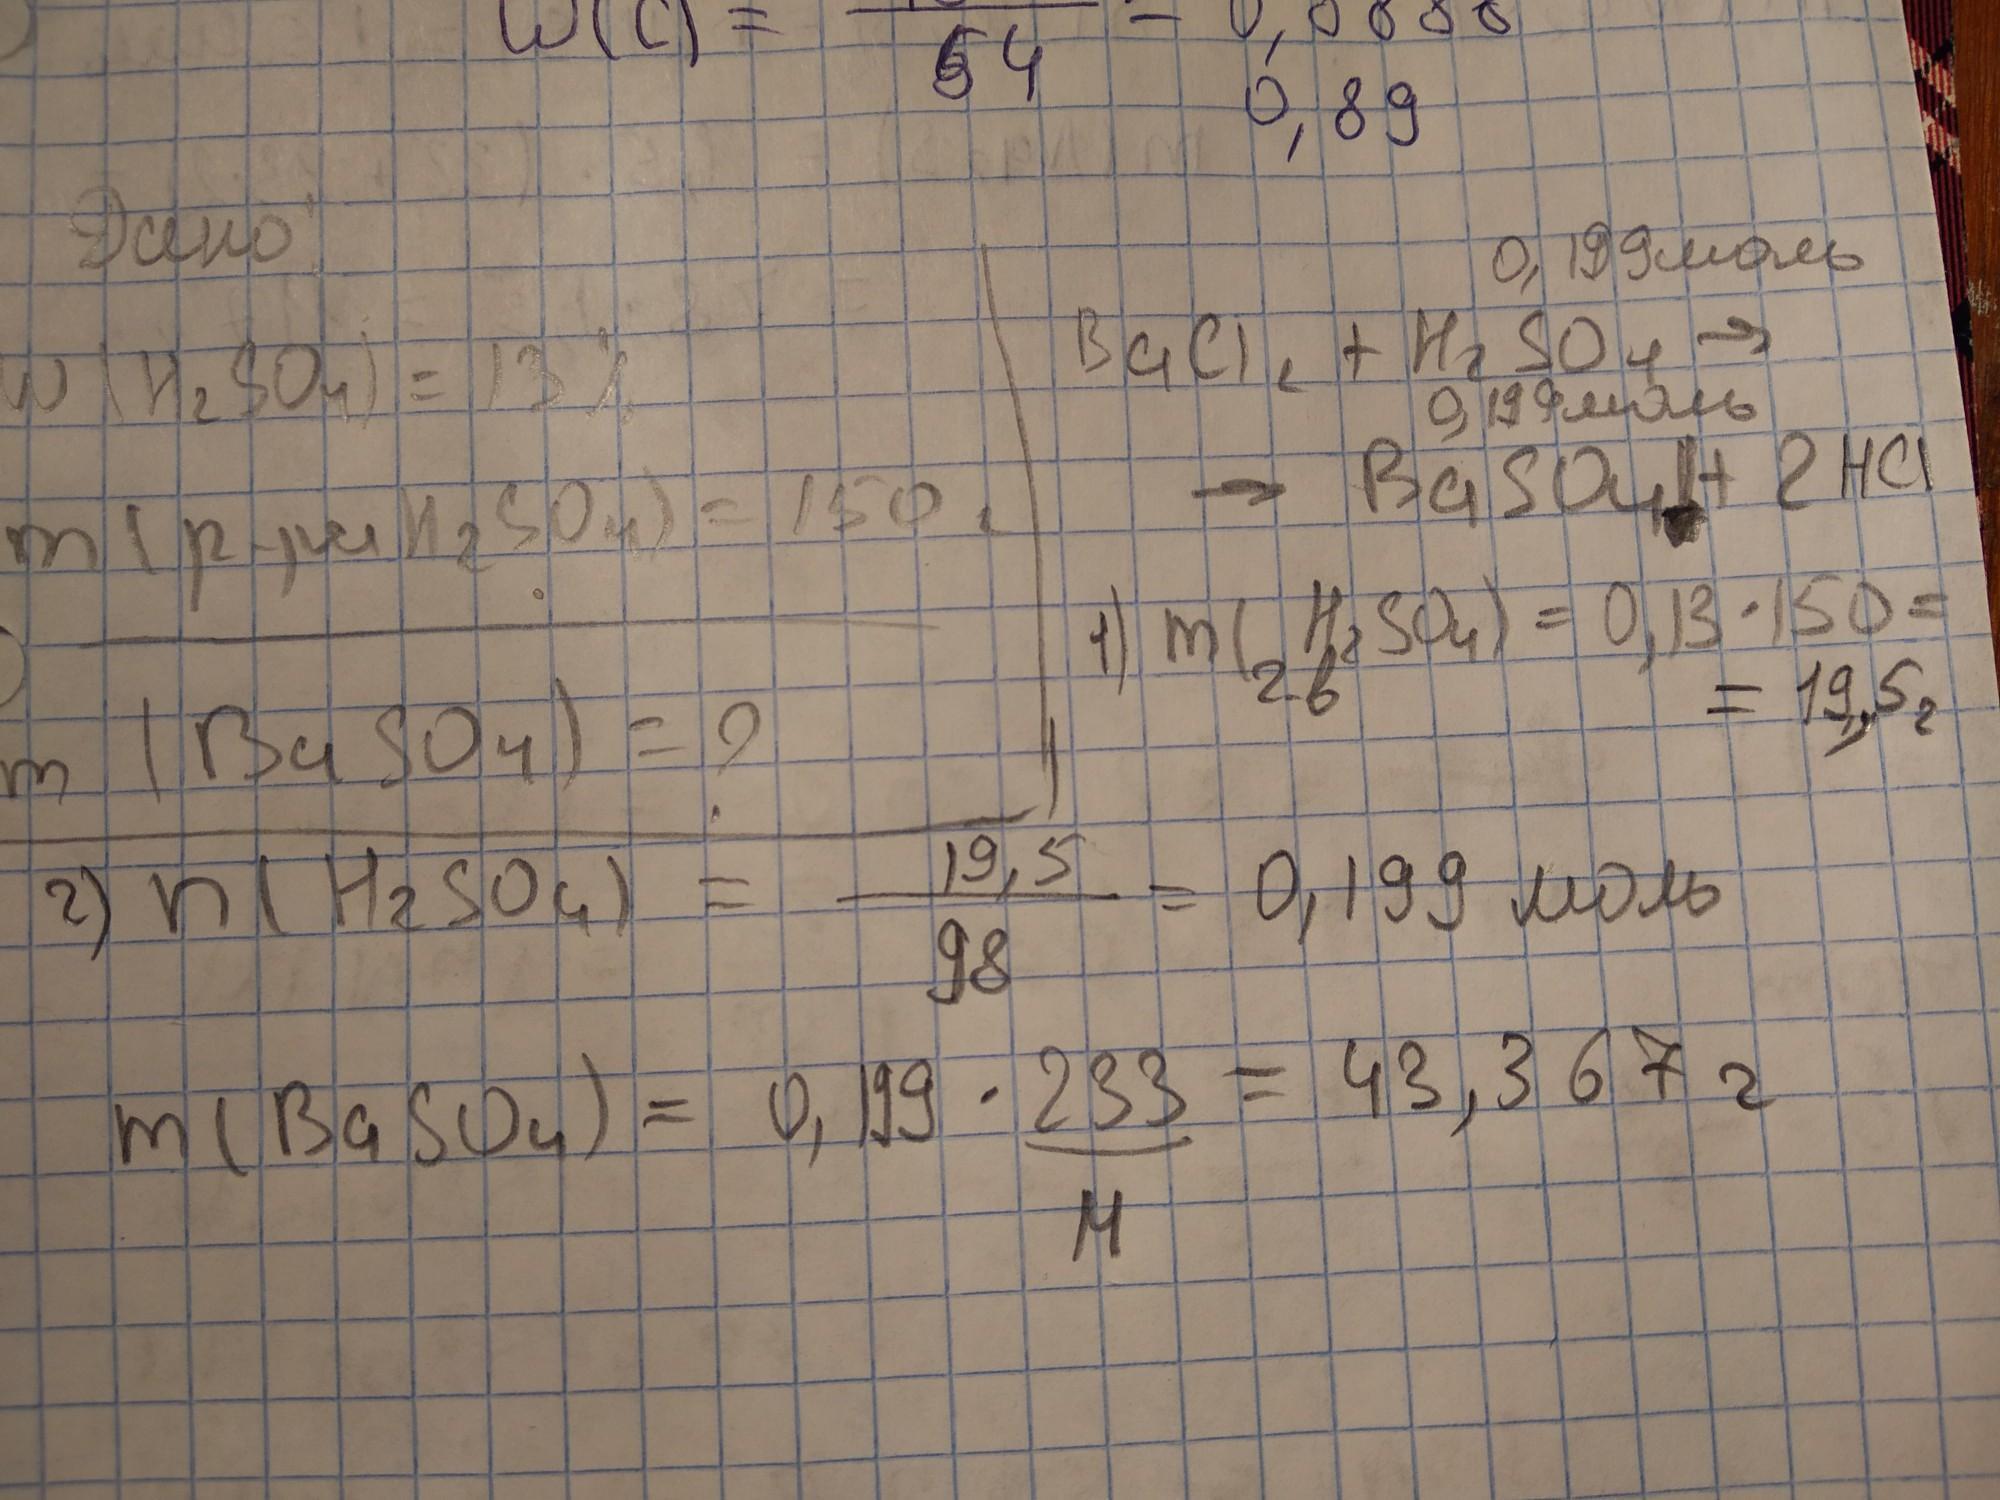 W(C) = 54 = 0,8888
0,89
Дано:
W(H₂SO₄) = 13%
m(р-ра H₂SO₄) = 150 г
m(BaSO₄) = ?
0,199 моль
BaCl₂ + H₂SO₄ →
0,199 моль
→ BaSO₄↓ + 2HCl
1) m(H₂SO₄) = 0,13 · 150 =
г-в
= 19,5 г
2) n(H₂SO₄) = 19,5 / 98 = 0,199 моль
m(BaSO₄) = 0,199 · 233 = 43,367 г
M